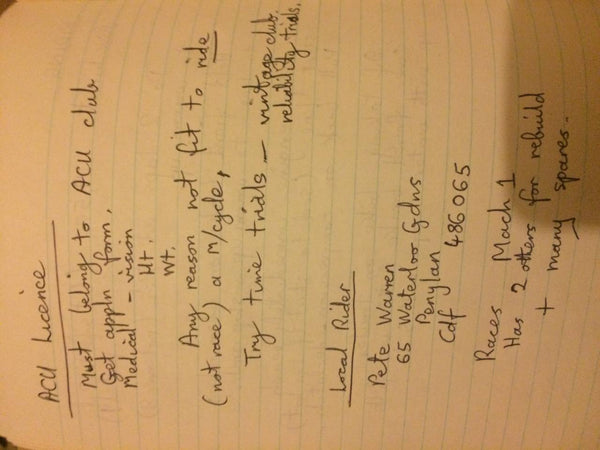 ACU Licence
Must belong to ACU club
Get appln form.
Medical - vision
Ht.
Wt.
Any reason not fit to ride
(not race) a m/cycle,
Try time trials - vintage club
reliability trials.
Local Rider
Pete Warren
65 Waterloo Gdns
Penylan
Cdf 486065
Races Mach 1
Has 2 others for rebuild
+ many spares.